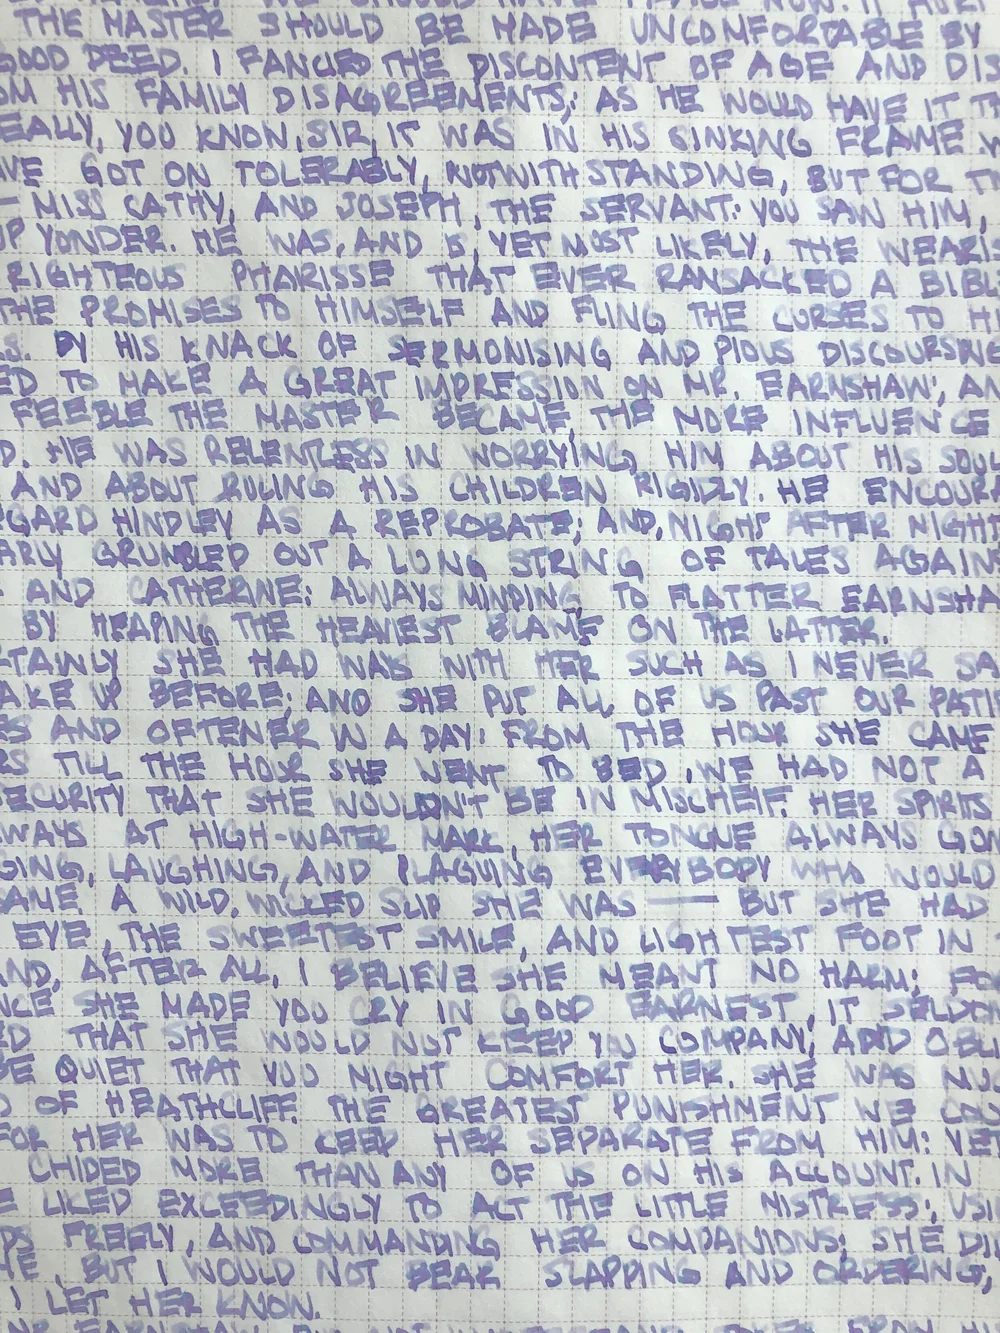 THE MASTER SHOULD BE MADE UNCOMFORTABLE BY
GOOD DEED. I FANCIED THE DISCONTENT OF AGE AND DIS
OM HIS FAMILY DISAGREEMENTS; AS HE WOULD HAVE IT TH
EALLY, YOU KNOW, SIR, IT WAS IN HIS SINKING FRAME. W
AVE GOT ON TOLERABLY, NOTWITHSTANDING, BUT FOR TW
- MISS CATHY, AND JOSEPH, THE SERVANT: YOU SAW HIM,
UP YONDER. HE WAS, AND IS, YET MOST LIKELY, THE WEARIS
RIGHTEOUS PHARISSE THAT EVER RANSACKED A BIBL
THE PROMISES TO HIMSELF AND FLING THE CURSES TO HI
S. BY HIS KNACK OF SERMONISING AND PIOUS DISCOURSING
ED TO MAKE A GREAT IMPRESSION ON MR. EARNSHAW; AN
FEEBLE THE MASTER BECAME, THE MORE INFLUENCE
D. HE WAS RELENTLESS IN WORRYING HIM ABOUT HIS SOUL
AND ABOUT RULING HIS CHILDREN RIGIDLY. HE ENCOURA
GARD HINDLEY AS A REPROBATE; AND, NIGHT AFTER NIGHT
ARLY GRUMBLED OUT A LONG STRING OF TALES AGAINS
AND CATHERINE: ALWAYS MINDING TO FLATTER EARNSHA
BY HEAPING THE HEAVIEST BLAME ON THE LATTER.
TAINLY SHE HAD WAYS WITH HER SUCH AS I NEVER SA
AKE UP BEFORE; AND SHE PUT ALL OF US PAST OUR PATIE
S AND OFTENER IN A DAY: FROM THE HOUR SHE CAME
RS TILL THE HOUR SHE WENT TO BED, WE HAD NOT A
SECURITY THAT SHE WOULDN'T BE IN MISCHEIF. HER SPIRITS
WAYS AT HIGH-WATER MARK, HER TONGUE ALWAYS GOI
GING, LAUGHING, AND PLAGUING EVERYBODY WHO WOULD
SAME. A WILD, WICKED SLIP SHE WAS — BUT SHE HAD
EYE, THE SWEETEST SMILE, AND LIGHTEST FOOT IN
AND, AFTER ALL, I BELIEVE SHE MEANT NO HARM; FO
NCE SHE MADE YOU CRY IN GOOD EARNEST, IT SELDOM
ED THAT SHE WOULD NOT KEEP YOU COMPANY, AND OBLI
BE QUIET THAT YOU MIGHT COMFORT HER. SHE WAS MUC
D OF HEATHCLIFF. THE GREATEST PUNISHMENT WE COU
FOR HER WAS TO KEEP HER SEPARATE FROM HIM: YET
CHIDED MORE THAN ANY OF US ON HIS ACCOUNT. IN
E LIKED EXCEEDINGLY TO ACT THE LITTLE MISTRESS; USI
DS FREELY, AND COMMANDING HER COMPANIONS; SHE DID
ME, BUT I WOULD NOT BEAR SLAPPING AND ORDERING;
I LET HER KNOW.